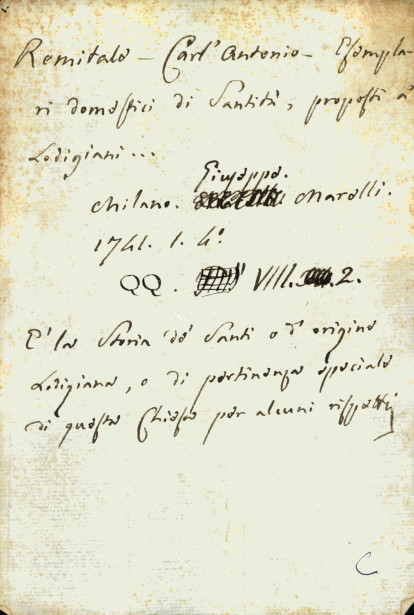 Remitale - Carl' Antonio - Esempla-
ri domestici di Santità, proposti a'
Lodigiani...
Giuseppe.
Milano. Marelli.
1741. 1. 4°.
QQ. VIII. 2.
E' la Storia de' Santi o d' origine
Lodigiana, o di pertinenza speciale
di questa Chiesa per alcuni rispetti
C